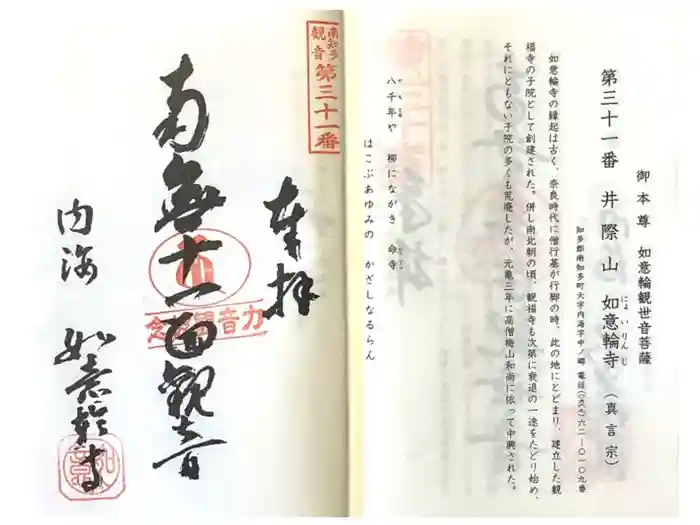 御本尊　如意輪観世音菩薩
第三十一番　井際山　如意輪寺（真言宗）
にょいりんじ
知多郡南知多町大字内海字中ノ郷　電話(〇五六九)六二―〇一〇九番
如意輪寺の縁起は古く、奈良時代に僧行基が行脚の時、此の地にとどまり、建立した観
福寺の子院として創建された。併し南北朝の頃、観福寺も次第に衰退の一途をたどり始め、
それにともない子院の多くも荒廃したが、元亀三年に高僧梅山和尚に依って中興された。
八千年や　柳にながき　命寺
はこぶあゆみの　かざしなるらん
南知多
観音
第三十一番
奉拝
南無十一面観音
内海　如意輪寺